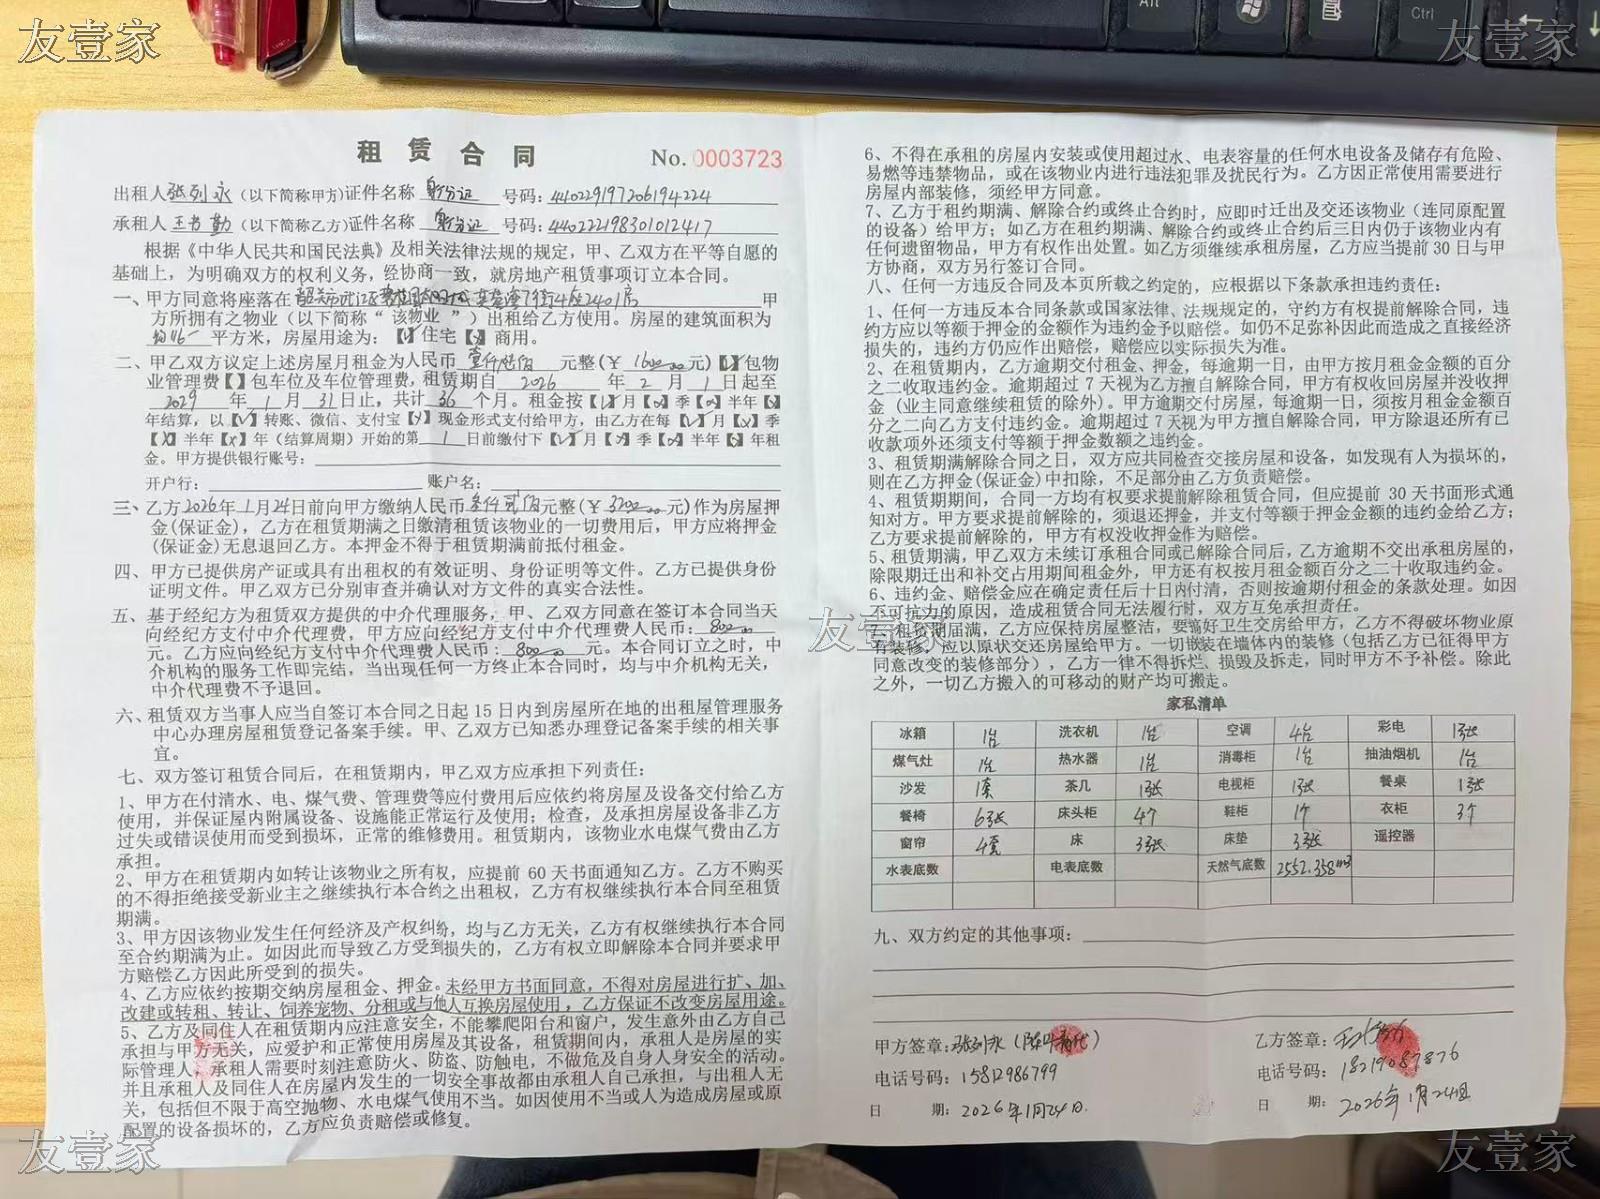 友壹家
友壹家
Alt
Ctrl
租赁合同
No. 0003723
出租人张列永(以下简称甲方)证件名称 身份证 号码:440229197206194224
承租人王书勤(以下简称乙方)证件名称 身份证 号码:440222198301012417
根据《中华人民共和国民法典》及相关法律法规的规定,甲、乙双方在平等自愿的
基础上,为明确双方的权利义务,经协商一致,就房地产租赁事项订立本合同。
一、甲方同意将座落在 韶关市浈江区 街4座2401房 甲
方所拥有之物业(以下简称“该物业”)出租给乙方使用。房屋的建筑面积为
约116 平方米,房屋用途为:【√】住宅【×】商用。
二、甲乙双方议定上述房屋月租金为人民币 壹仟陆佰 元整(¥ 1600.00 元)【√】包物
业管理费【 】包车位及车位管理费,租赁期自 2026 年 2 月 1 日起至
2029 年 1 月 31 日止,共计 36 个月。租金按【√】月【×】季【×】半年【×】
年结算,以【√】转账、微信、支付宝【√】现金形式支付给甲方,由乙方在每【√】月【×】季
【×】半年【×】年(结算周期)开始的第 1 日前缴付下【√】月【×】季【×】半年【×】年租
金。甲方提供银行账号:
开户行: 账户名:
三、乙方2026年1月24日前向甲方缴纳人民币 叁仟贰佰元整(¥ 3200.00 元)作为房屋押
金(保证金),乙方在租赁期满之日缴清租赁该物业的一切费用后,甲方应将押金
(保证金)无息退回乙方。本押金不得于租赁期满前抵付租金。
四、甲方已提供房产证或具有出租权的有效证明、身份证明等文件。乙方已提供身份
证明文件。甲乙双方已分别审查并确认对方文件的真实合法性。
五、基于经纪方为租赁双方提供的中介代理服务,甲、乙双方同意在签订本合同当天
向经纪方支付中介代理费,甲方应向经纪方支付中介代理费人民币:800.00
元。乙方应向经纪方支付中介代理费人民币:800.00 元。本合同订立之时,中
介机构的服务工作即完结,当出现任何一方终止本合同时,均与中介机构无关,
中介代理费不予退回。
六、租赁双方当事人应当自签订本合同之日起15日内到房屋所在地的出租屋管理服务
中心办理房屋租赁登记备案手续。甲、乙双方已知悉办理登记备案手续的相关事
宜。
七、双方签订租赁合同后,在租赁期内,甲乙双方应承担下列责任:
1、甲方在付清水、电、煤气费、管理费等应付费用后应依约将房屋及设备交付给乙方
使用,并保证屋内附属设备、设施能正常运行及使用;检查,及承担房屋设备非乙方
过失或错误使用而受到损坏,正常的维修费用。租赁期内,该物业水电煤气费由乙方
承担。
2、甲方在租赁期内如转让该物业之所有权,应提前60天书面通知乙方。乙方不购买
的不得拒绝接受新业主之继续执行本合约之出租权,乙方有权继续执行本合同至租赁
期满。
3、甲方因该物业发生任何经济及产权纠纷,均与乙方无关,乙方有权继续执行本合同
至合约期满为止。如因此而导致乙方受到损失的,乙方有权立即解除本合同并要求甲
方赔偿乙方因此所受到的损失。
4、乙方应依约按期交纳房屋租金、押金。未经甲方书面同意,不得对房屋进行扩、加、
改建或转租、转让、饲养宠物、分租或与他人互换房屋使用,乙方保证不改变房屋用途。
5、乙方及同住人在租赁期内应注意安全,不能攀爬阳台和窗户,发生意外由乙方自己
承担与甲方无关,应爱护和正常使用房屋及其设备,租赁期间内,承租人是房屋的实
际管理人,承租人需要时刻注意防火、防盗、防触电,不做危及自身人身安全的活动。
并且承租人及同住人在房屋内发生的一切安全事故都由承租人自己承担,与出租人无
关,包括但不限于高空抛物、水电煤气使用不当。如因使用不当或人为造成房屋或原
配置的设备损坏的,乙方应负责赔偿或修复。
6、不得在承租的房屋内安装或使用超过水、电表容量的任何水电设备及储存有危险、
易燃等违禁物品,或在该物业内进行违法犯罪及扰民行为。乙方因正常使用需要进行
房屋内部装修,须经甲方同意。
7、乙方于租约期满、解除合约或终止合约时,应即时迁出及交还该物业(连同原配置
的设备)给甲方;如乙方在租约期满、解除合约或终止合约后三日内仍于该物业内有
任何遗留物品,甲方有权作出处置。如乙方须继续承租房屋,乙方应当提前30日与甲
方协商,双方另行签订合同。
八、任何一方违反合同及本页所载之约定的,应根据以下条款承担违约责任:
1、任何一方违反本合同条款或国家法律、法规规定的,守约方有权提前解除合同,违
约方应以等额于押金的金额作为违约金予以赔偿。如仍不足弥补因此而造成之直接经济
损失的,违约方仍应作出赔偿,赔偿应以实际损失为准。
2、在租赁期内,乙方逾期交付租金、押金,每逾期一日,由甲方按月租金金额的百分
之二收取违约金。逾期超过7天视为乙方擅自解除合同,甲方有权收回房屋并没收押
金(业主同意继续租赁的除外)。甲方逾期交付房屋,每逾期一日,须按月租金金额百
分之二向乙方支付违约金。逾期超过7天视为甲方擅自解除合同,甲方除退还所有已
收款项外还须支付等额于押金数额之违约金。
3、租赁期满解除合同之日,双方应共同检查交接房屋和设备,如发现有人为损坏的,
则在乙方押金(保证金)中扣除,不足部分由乙方负责赔偿。
4、租赁期期间,合同一方均有权要求提前解除租赁合同,但应提前30天书面形式通
知对方。甲方要求提前解除的,须退还押金,并支付等额于押金金额的违约金给乙方;
乙方要求提前解除的,甲方有权没收押金作为赔偿。
5、租赁期满,甲乙双方未续订承租合同或已解除合同后,乙方逾期不交出承租房屋的,
除限期迁出和补交占用期间租金外,甲方还有权按月租金额百分之二十收取违约金。
6、违约金、赔偿金应在确定责任后十日内付清,否则按逾期付租金的条款处理。如因
不可抗力的原因,造成租赁合同无法履行时,双方互免承担责任。
7、租赁期届满,乙方应保持房屋整洁,要搞好卫生交房给甲方,乙方不得破坏物业原
有装修,应以原状交还房屋给甲方。一切嵌装在墙体内的装修(包括乙方已征得甲方
同意改变的装修部分),乙方一律不得拆烂、损毁及拆走,同时甲方不予补偿。除此
之外,一切乙方搬入的可移动的财产均可搬走。
友壹家
家私清单
冰箱 1台 洗衣机 1台 空调 4台 彩电 1张
煤气灶 1台 热水器 1台 消毒柜 1台 抽油烟机 1台
沙发 1套 茶几 1张 电视柜 1张 餐桌 1张
餐椅 6张 床头柜 4个 鞋柜 1个 衣柜 3个
窗帘 4套 床 3张 床垫 3张 遥控器
水表底数 电表底数 天然气底数 2552.358m3
九、双方约定的其他事项:
甲方签章:张列永(陈叶青代)
电话号码:15812986799
日 期:2026年1月24日.
乙方签章:王书勤
电话号码:18219087876
日 期:2026年1月24日
友壹家
友壹家